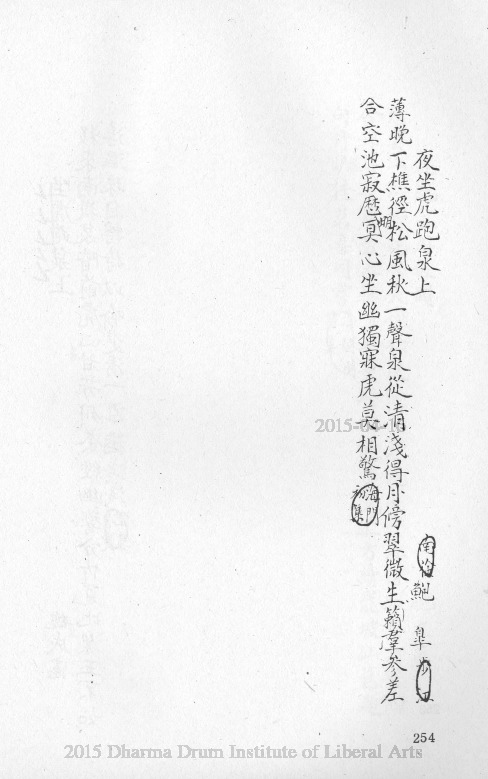 夜坐虎跑泉上
南徐鮑 皐步江
薄晚下樵徑松風秋一聲泉從清淺得月傍翠微生籟羣參差
合空池寂厯明冥心坐幽獨寐虎莫相驚
海門
初集
254
2015 Dharma Drum Institute of Liberal Arts